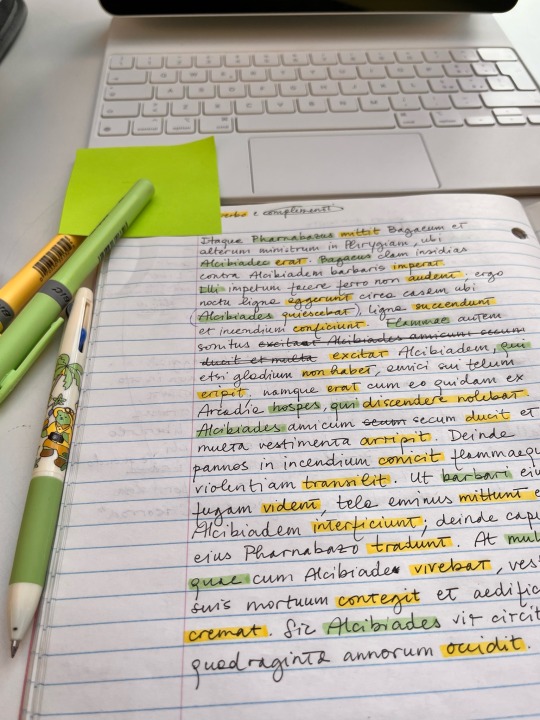 verbo e complementi
Itaque Pharnabazus mittit Bagaeum et
alterum ministrum in Phrygiam, ubi
Alcibiades erat. Bagaeus clam insidias
contra Alcibiadem barbaris imperat.
Illi impetum facere ferro non audent, ergo
noctu ligna eggerunt circa casam ubi
(Alcibiades quiescebat), ligna succendunt
et incendium conficiunt. Flammae autem
sonitus excitat Alcibiades amicum secum
ducit et multa excitat Alcibiadem, qui
etsi gladium non habet, amici sui telum
eripit, namque erat cum eo quidam ex
Arcadia hospes, qui discendere nolebat
Alcibiades amicum secum secum ducit et
multa vestimenta arripit. Deinde
pannos in incendium conicit flammaeq
violentiam transilit. Ut barbari eiu
fugam vident, tela eminus mittunt e
Alcibiadem interficiunt; deinde cap
eius Pharnabazo tradunt. At mul
quae cum Alcibiade vivebat, ves
suis mortuum contegit et aedific
cremat. Sic Alcibiades vir circit
quadraginta annorum occidit.